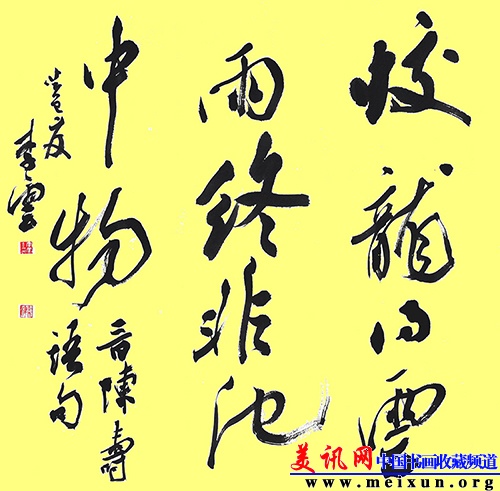 蛟龍得雲
雨終非池
中物
晋陳壽
語句
李雲
美讯网 中国书画收藏频道
www.meixun.org